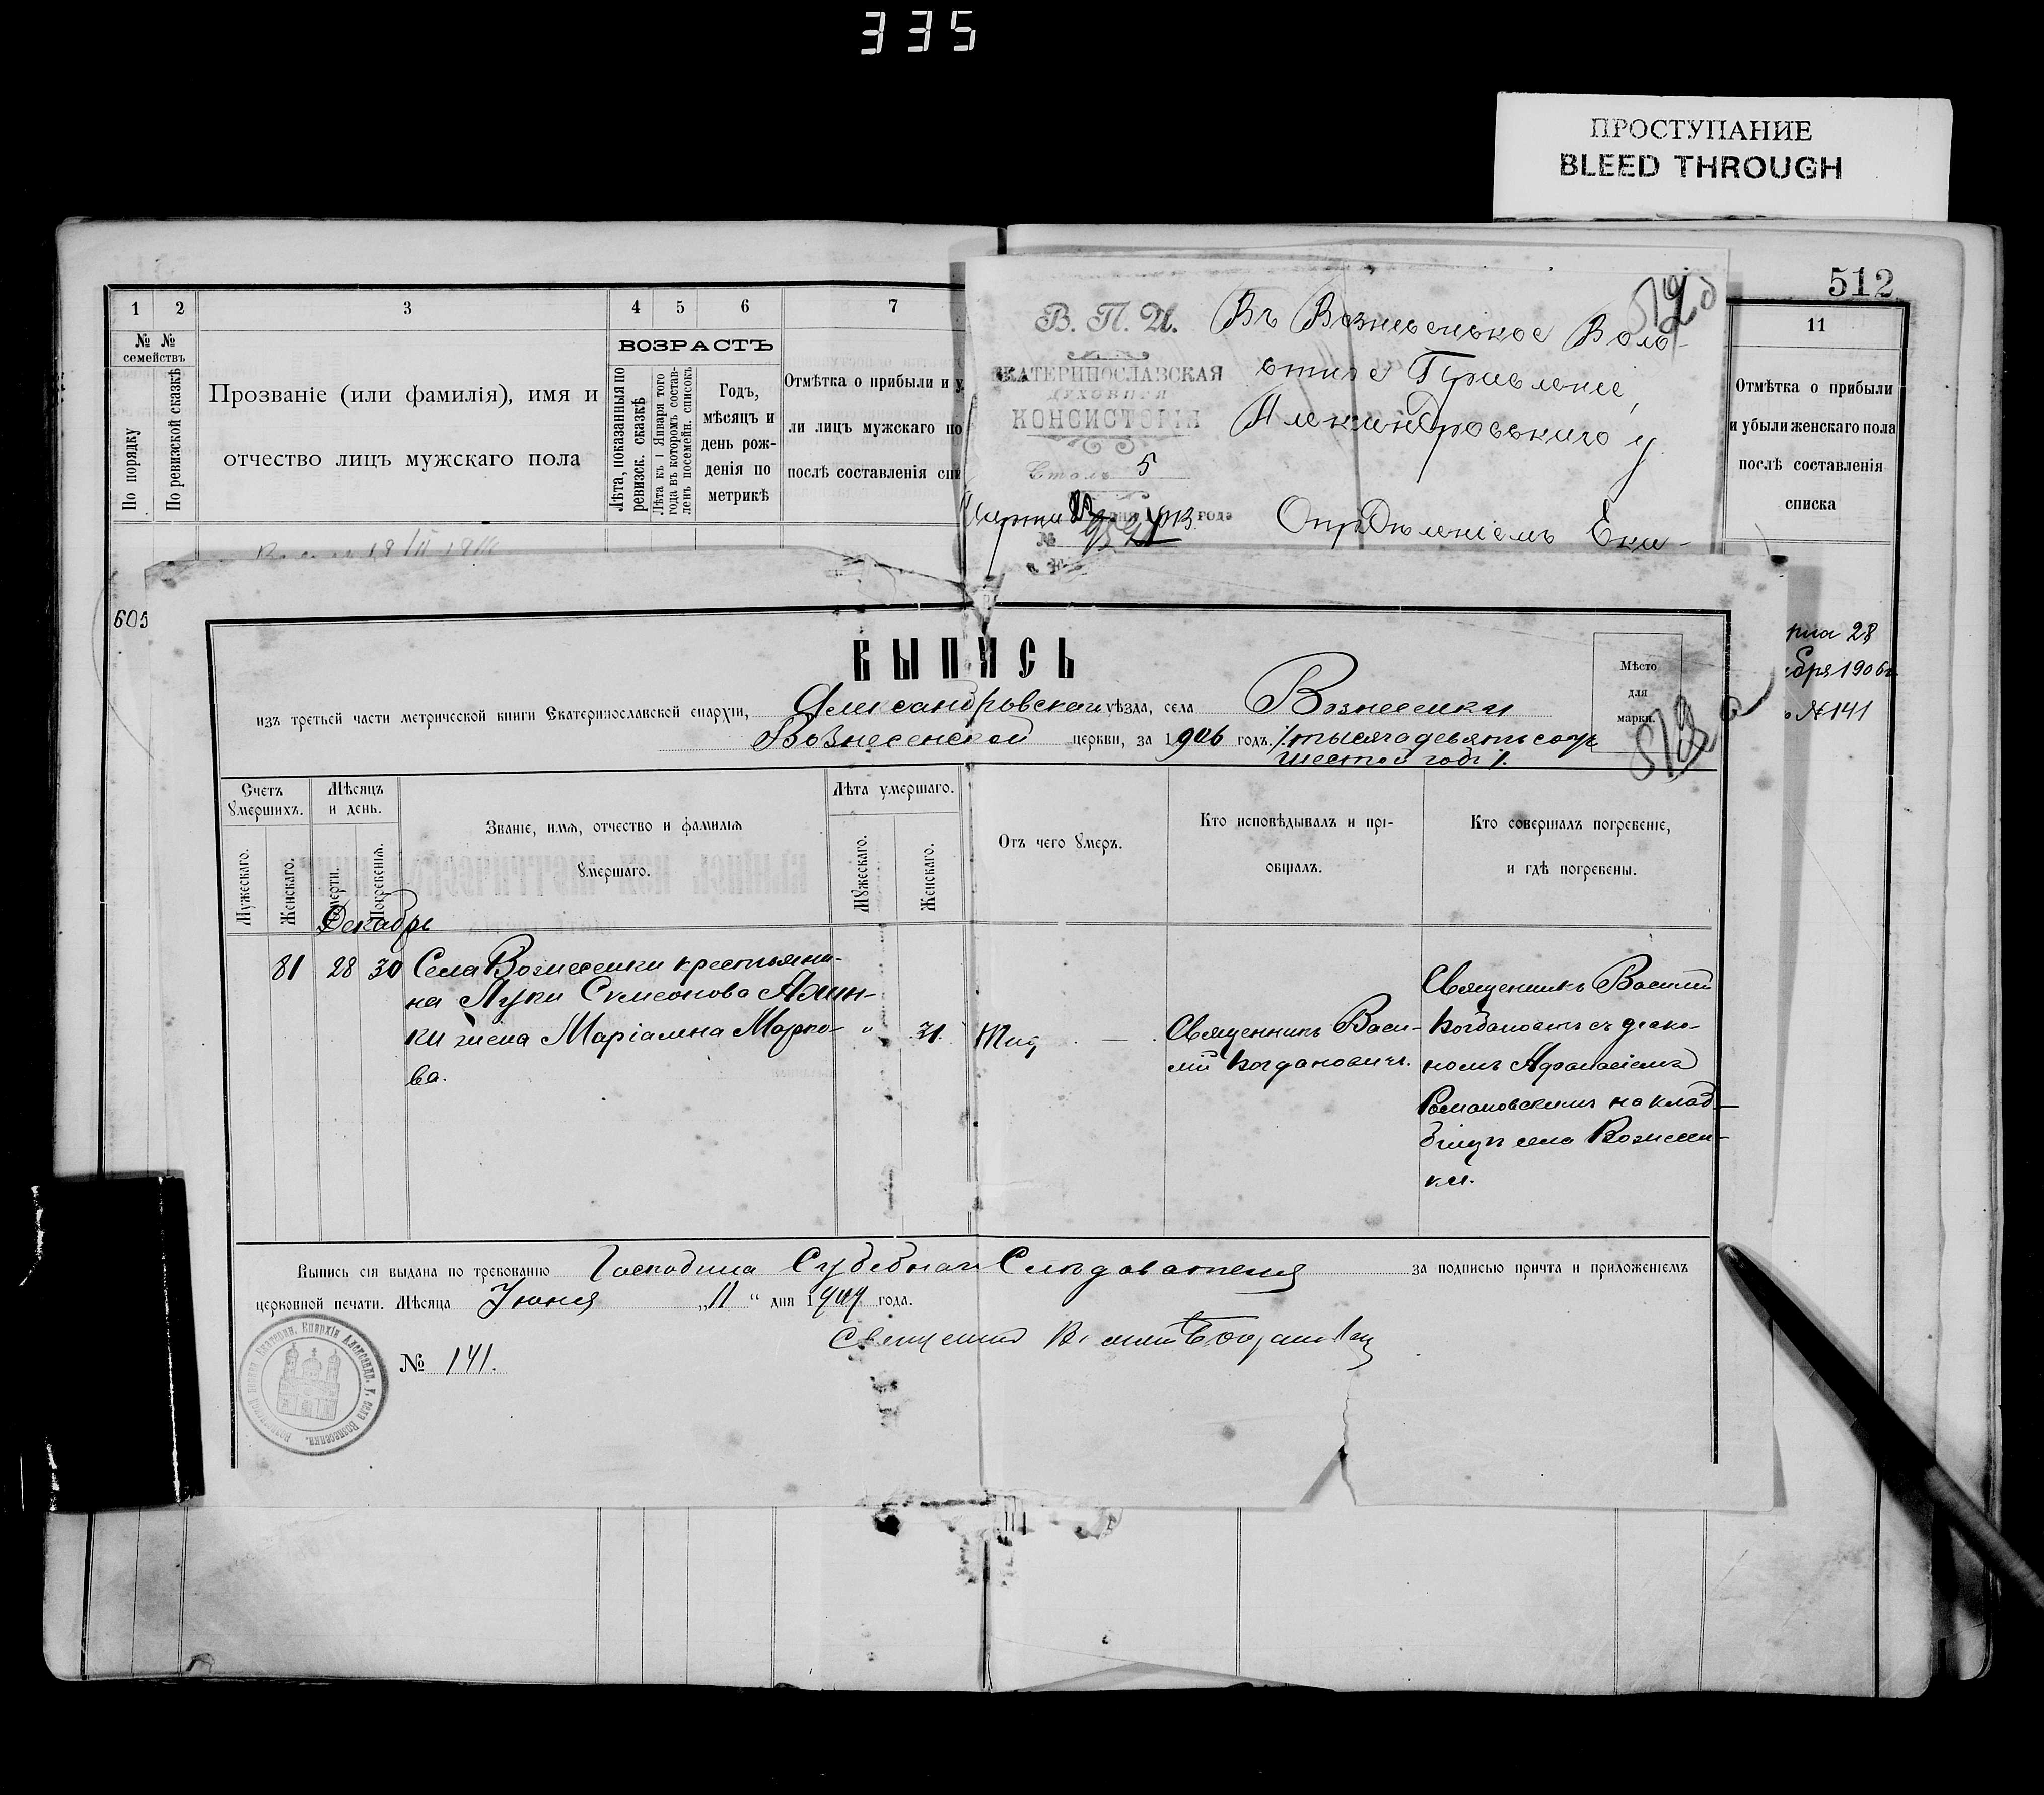 335
ПРОСТУПАНИЕ
BLEED THROUGH
512
1 2 3 4 5 6 7
№ № семействъ
По порядку
По ревизской сказкѣ
Прозваніе (или фамилія), имя и
отчество лицъ мужскаго пола
ВОЗРАСТЪ
Лѣта, показанныя по
ревизск. сказкѣ
Лѣта къ 1 Января того
года въ которомъ состав-
ленъ посемейн. списокъ
Годъ,
мѣсяцъ и
день рож-
денія по
метрикѣ
Отмѣтка о прибыли и у
ли лицъ мужскаго по
послѣ составленія спи
11
Отмѣтка о прибыли
и убыли женскаго пола
послѣ составленія
списка
В. П. И.
ЕКАТЕРИНОСЛАВСКАЯ
ДУХОВНАЯ
КОНСИСТОРІЯ
Столъ 5
Марта дня 1913 года
№
Въ Вознесенское Воло-
стное Правленіе,
Александровскаго у.
Опредѣленіемъ Ека-
605
28
бря 1906 г.
№ 141
ВЫПИСЬ
Мѣсто
для
марки.
изъ третьей части метрической книги Екатеринославской епархіи, Александровскаго уѣзда, села Вознесенки
Вознесенской церкви, за 1906 годъ. /тысяча девятьсотъ
шестой годъ/.
Счетъ
умершихъ.
Мужескаго.
Женскаго.
Мѣсяцъ
и день.
Смерти.
Погребенія.
Званіе, имя, отчество и фамилія
умершаго.
Лѣта умершаго.
Мужескаго.
Женскаго.
Отъ чего умеръ.
Кто исповѣдывалъ и прі-
общалъ.
Кто совершалъ погребеніе,
и гдѣ погребены.
Декабрь
81 28 30
Села Вознесенки крестьяни-
на Луки Симеонова
жена Маріамна Марко-
ва.
" 31.
Священникъ Васи-
лій Богдановичъ.
Священникъ Василій
Богдановичъ съ діако-
номъ Афанасіемъ
Романовскимъ на клад-
бищѣ села Вознесен-
ки.
Выпись сія выдана по требованію Господина Судебнаго Слѣдователя за подписью причта и приложеніемъ
церковной печати. Мѣсяца Іюня „11“ дня 1907 года.
Священникъ Василій Богдановичъ
№ 141.